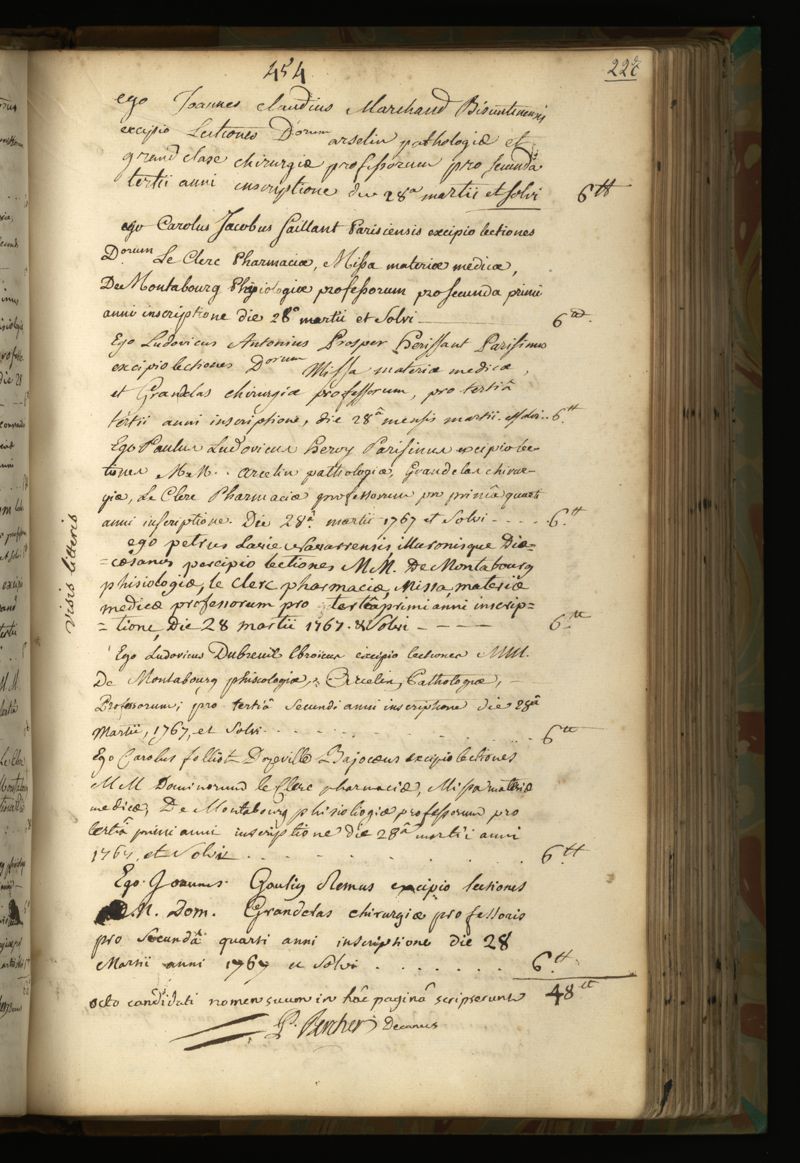 454
227
ego Joannes claudius Marchand Bisuntinensis
excipio Lectiones Dorum arselin pathologiæ et
grandclase chirurgiæ professorum pro secunda
tertii anni inscriptione die 28a martii et solvi 6tt
ego Carolus Jacobus Saillant Parisiensis excipio lectiones
Dorum Le Clerc Pharmaciæ, Missa materiæ medicæ,
De Montabourg Physiologiæ professorum pro secunda primi
anni inscriptione die 28a martii et Solvi 6tt.
Ego Ludovicus Antonius Prosper Herissant Parisinus
excipio lectiones Dorum Missa materiæ medicæ,
et Grandclas chirurgiæ professorum, pro tertiâ
tertii anni inscriptione, die 28â mensis martii et solvi.. 6tt
Ego Paulus Ludovicus Hervy Parisinus excipio lec-
tiones M.M. arcelin pathologiæ, Grandclas chirur-
giæ, Le Clerc Pharmaciæ professorum pro primâ quarti
anni inscriptione. Die 28â martii 1767 et Solvi - - - - 6tt
ego petrus Lavie Navarrensis illuronisque Diæ-
=cæsanus percipio lectiones MM. De Montabourg
phisiologiæ, le clerc pharmaciæ, Missa materiæ
medicæ professorum pro tertiâ primi anni inscrip=
=tione, Die 28 martii 1767. & Solvi - - - - 6tt
visis litteris
Ego Ludovicus Dubreuil Ebroicus excipio lectiones MM.
De Montabourg phisiologiæ, Arcelin, Pathologiæ,
Professorum; pro tertiâ secundi anni inscriptione die 28â
Martii, 1767, et Solvi. . . . . . . 6tt
Ego Carolus folliot Dozeville Bajocæus excipio lectiones
MM Dominorum le Clerc pharmaciæ, Missa materiæ
medicæ, De Montabourg phisiologiæ professorum pro
tertiâ primi anni inscriptione die 28â martii anni
1767, et Solvi . . . . . . 6tt
Ego Joannes Goulin Remus excipio lectiones
M. Dom. Grandclas chirurgiæ professoris
pro secundâ quarti anni inscriptione die 28
Martii anni 1767 et Solvi . . . . . . . 6.tt
octo candidati nomen suum in hâc paginâ scripserunt 48tt
Bercher decanus